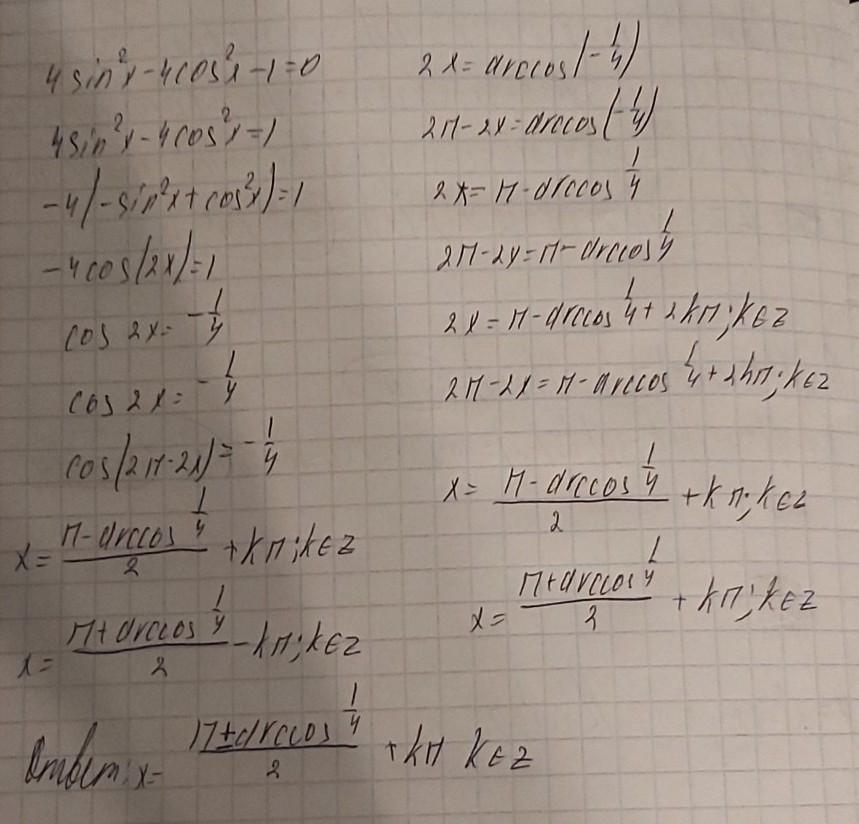 4sin²x-4cos²x-1=0
4sin²x-4cos²x=1
-4(-sin²x+cos²x)=1
-4cos(2x)=1
cos 2x=-1/4
cos 2x=-1/4
cos(2π-2x)=-1/4
x=(π-arccos 1/4)/2+kπ;k∈Z
x=(π+arccos 1/4)/2-kπ;k∈Z
2x=arccos(-1/4)
2π-2x=arccos(-1/4)
2x=π-arccos 1/4
2π-2x=π-arccos 1/4
2x=π-arccos 1/4+2kπ;k∈Z
2π-2x=π-arccos 1/4+2kπ;k∈Z
x=(π-arccos 1/4)/2+kπ;k∈Z
x=(π+arccos 1/4)/2+kπ;k∈Z
Ответ: x=(π±arccos 1/4)/2+kπ k∈Z